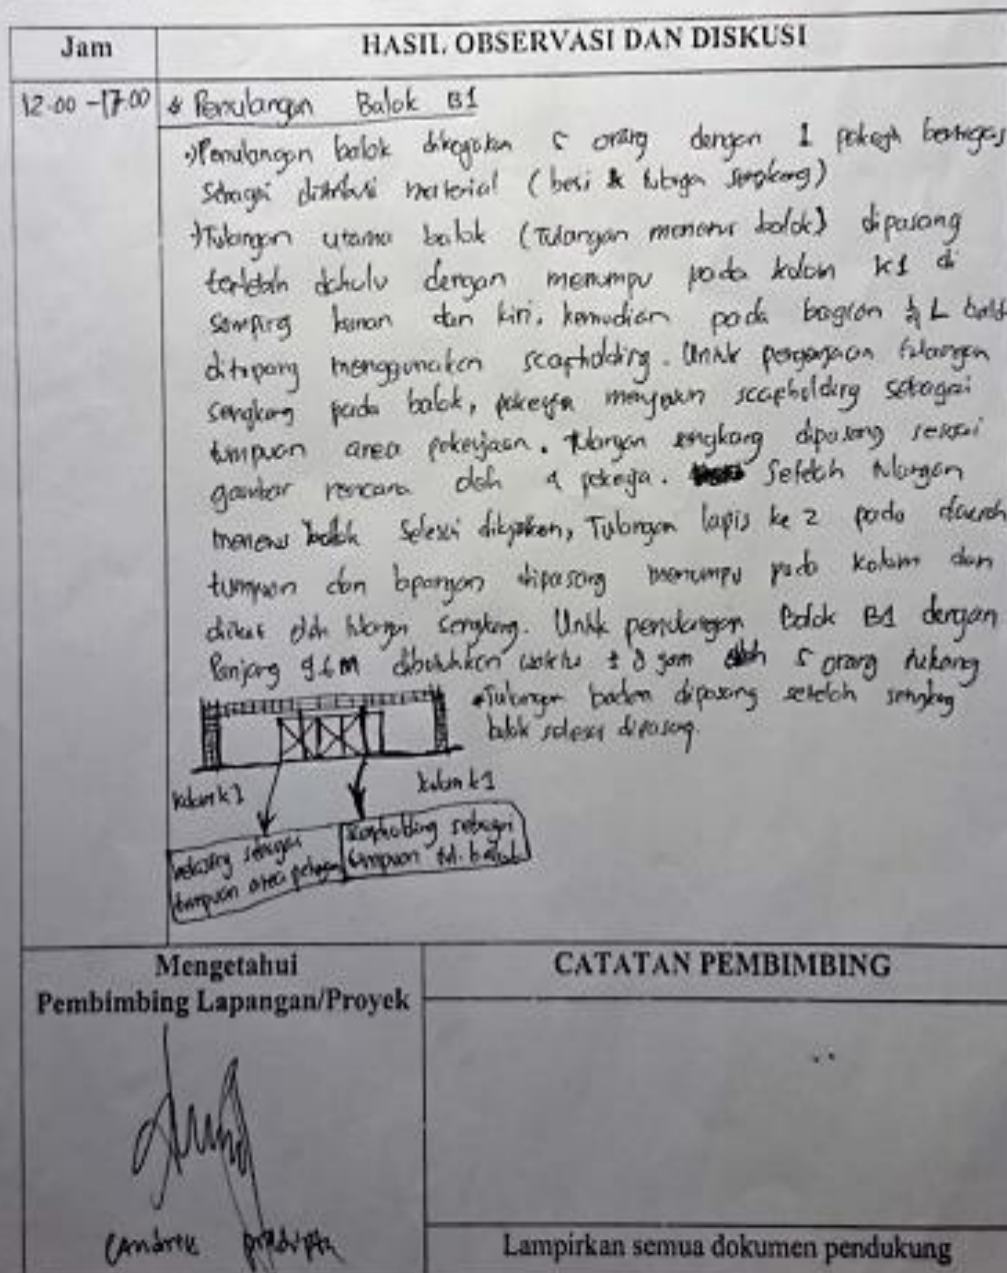 Jam
HASIL OBSERVASI DAN DISKUSI
12.00 - 17.00
Penulangan Balok B1
Penulangan balok dikerjakan 5 orang dengan 1 pekerja bertugas
sebagai distribusi material (besi & sengkang)
Tulangan utama balok (Tulangan menerus balok) dipasang
terlebih dahulu dengan menumpu pada kolom K1 di
samping kanan dan kiri, kemudian pada bagian L balok
ditopang menggunakan scapholding. Untuk pengerjaan tulangan
sengkang pada balok, pekerja scapholding sebagai
tumpuan area pekerjaan. tulangan sengkang dipasang sesuai
gambar rencana oleh 4 pekerja. Setelah tulangan
menerus balok selesai dikerjakan, Tulangan lapis ke 2 pada daerah
tumpuan dan lapangan dipasang menumpu pada kolom dan
diikat oleh tulangan sengkang. Untuk penulangan Balok B1 dengan
Panjang 9.6 M dibutuhkan waktu ± jam oleh 5 orang tukang
Tulangan badan dipasang setelah sengkang
balok selesai dipasang.
kolom k1
kolom k1
sebagai
tumpuan area
scapholding sebagai
tumpuan tul. balok
Mengetahui
Pembimbing Lapangan/Proyek
CATATAN PEMBIMBING
Lampirkan semua dokumen pendukung